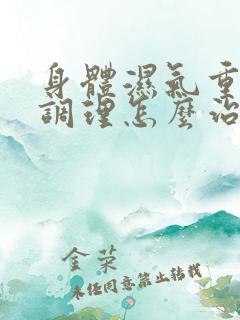 身體濕氣重
調理怎麼治
金荣
未经同意禁止转载